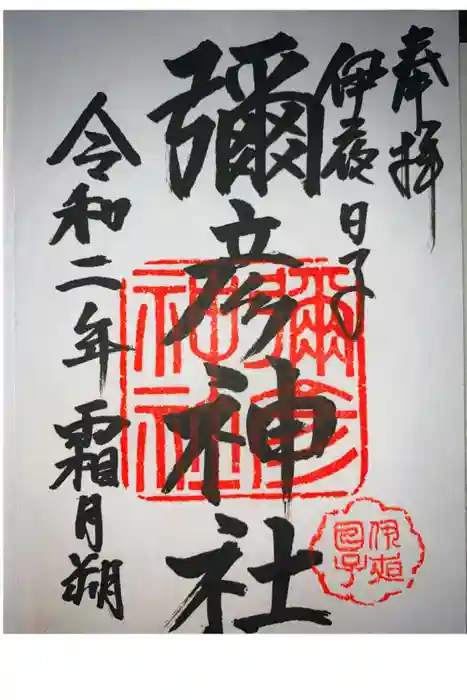 奉拝
伊夜日子
彌彦神社
令和二年霜月朔
彌彦
神社